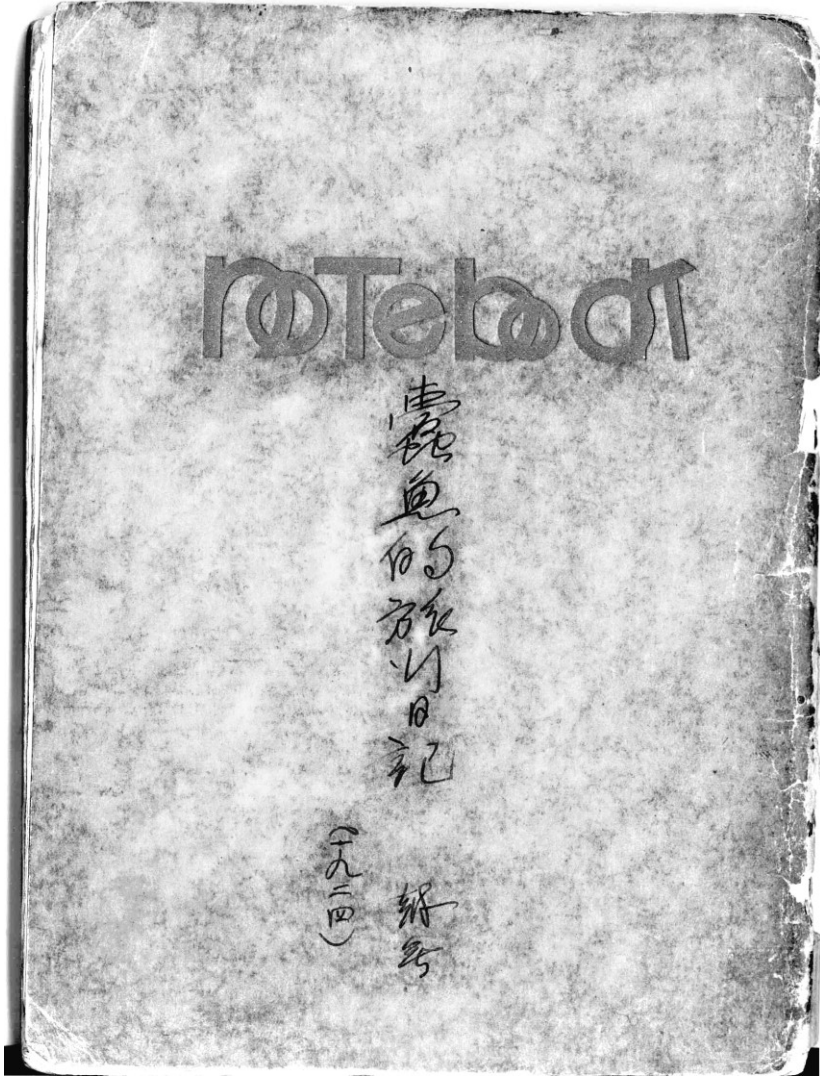 noTebook
蠹魚的旅行日記
(一九二四)